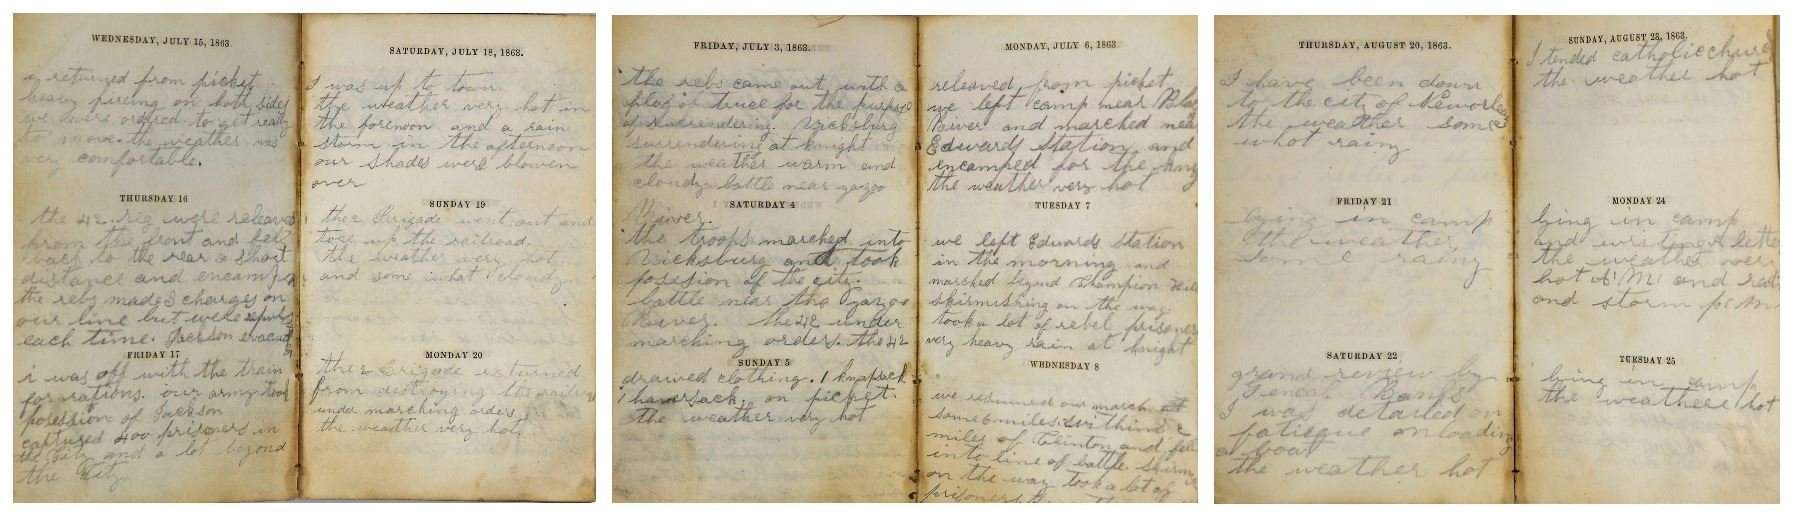 WEDNESDAY, JULY 15, 1863.
i returned from picket
heavy piecing on both sides
we were ordred to get ready
to move. the weather was
very comfortable.
THURSDAY 16
the 42. reg were releaved
from the front and fell
back to the rear a short
distance and encamp
the rebs made 3 charges on
our line but were
each time. Jackson
FRIDAY 17
i was off with the train
for rations. our army took
posession of Jackson
captured 400 prisoners in
the City and a lot beyond
the City
SATURDAY, JULY 18, 1863.
I was up to town.
the weather very hot in
the forenoon and a rain
storm in the afternoon
our shades were blowen
over
SUNDAY 19
the 2 Brigade went out and
tore up the railroad.
the weather very hot
and some what cloudy
MONDAY 20
the 2 Brigade returned
from destroying the railroad
under marching orders
the weather very hot,
FRIDAY, JULY 3, 1863.
the rebs came out with a
flag of truce for the
of surrendering. Vicksburg
surrendering at knight
the weather warm and
cloudy battle near yazoo
River.
SATURDAY 4
the troops marched into
Vicksburg and took
posesion of the city.
battle near the Yazoo
River. the 42 under
marching orders. the 42
SUNDAY 5
drawed clothing. 1 knapsack
1 haversack, on picket.
the weather very hot
MONDAY, JULY 6, 1863.
releaved from picket
we left camp near
River and marched near
Edwards Station and
encamped for the
the weather very hot
TUESDAY 7
we left Edwards Station
in the morning and
marched beyond Champion Hill
skirmishing on the way
took a lot of rebel prisoners
very heavy rain at knight
WEDNESDAY 8
we resumed our march
some 6 miles within
miles of Clinton and fell
into line of battle
on the way took a lot of
prisoners
THURSDAY, AUGUST 20, 1863.
I have been down
to the city of Neworleas
the weather some
whot rainy
FRIDAY 21
lying in camp
the weather
some rainy
SATURDAY 22
grand review by
Banks
I was detailed on
fatieque onloading
a boat
the weather hot
SUNDAY, AUGUST 23, 1863.
I tended catholic
the weather hot
MONDAY 24
lying in camp
and writing a letter
the weather very
hot A. M. and
and storm P. M.
TUESDAY 25
lying in camp
the weatheer hot